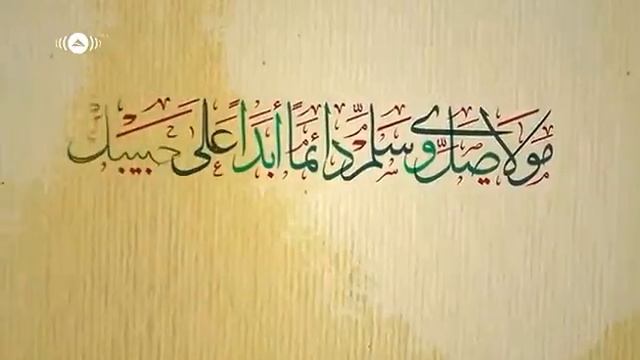 مولاي صلّ وسلم دائمًا أبدًا على حبيبك